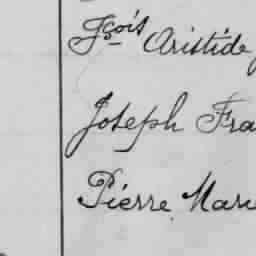 Fçois Aristide
Joseph Fra
Pierre Mari